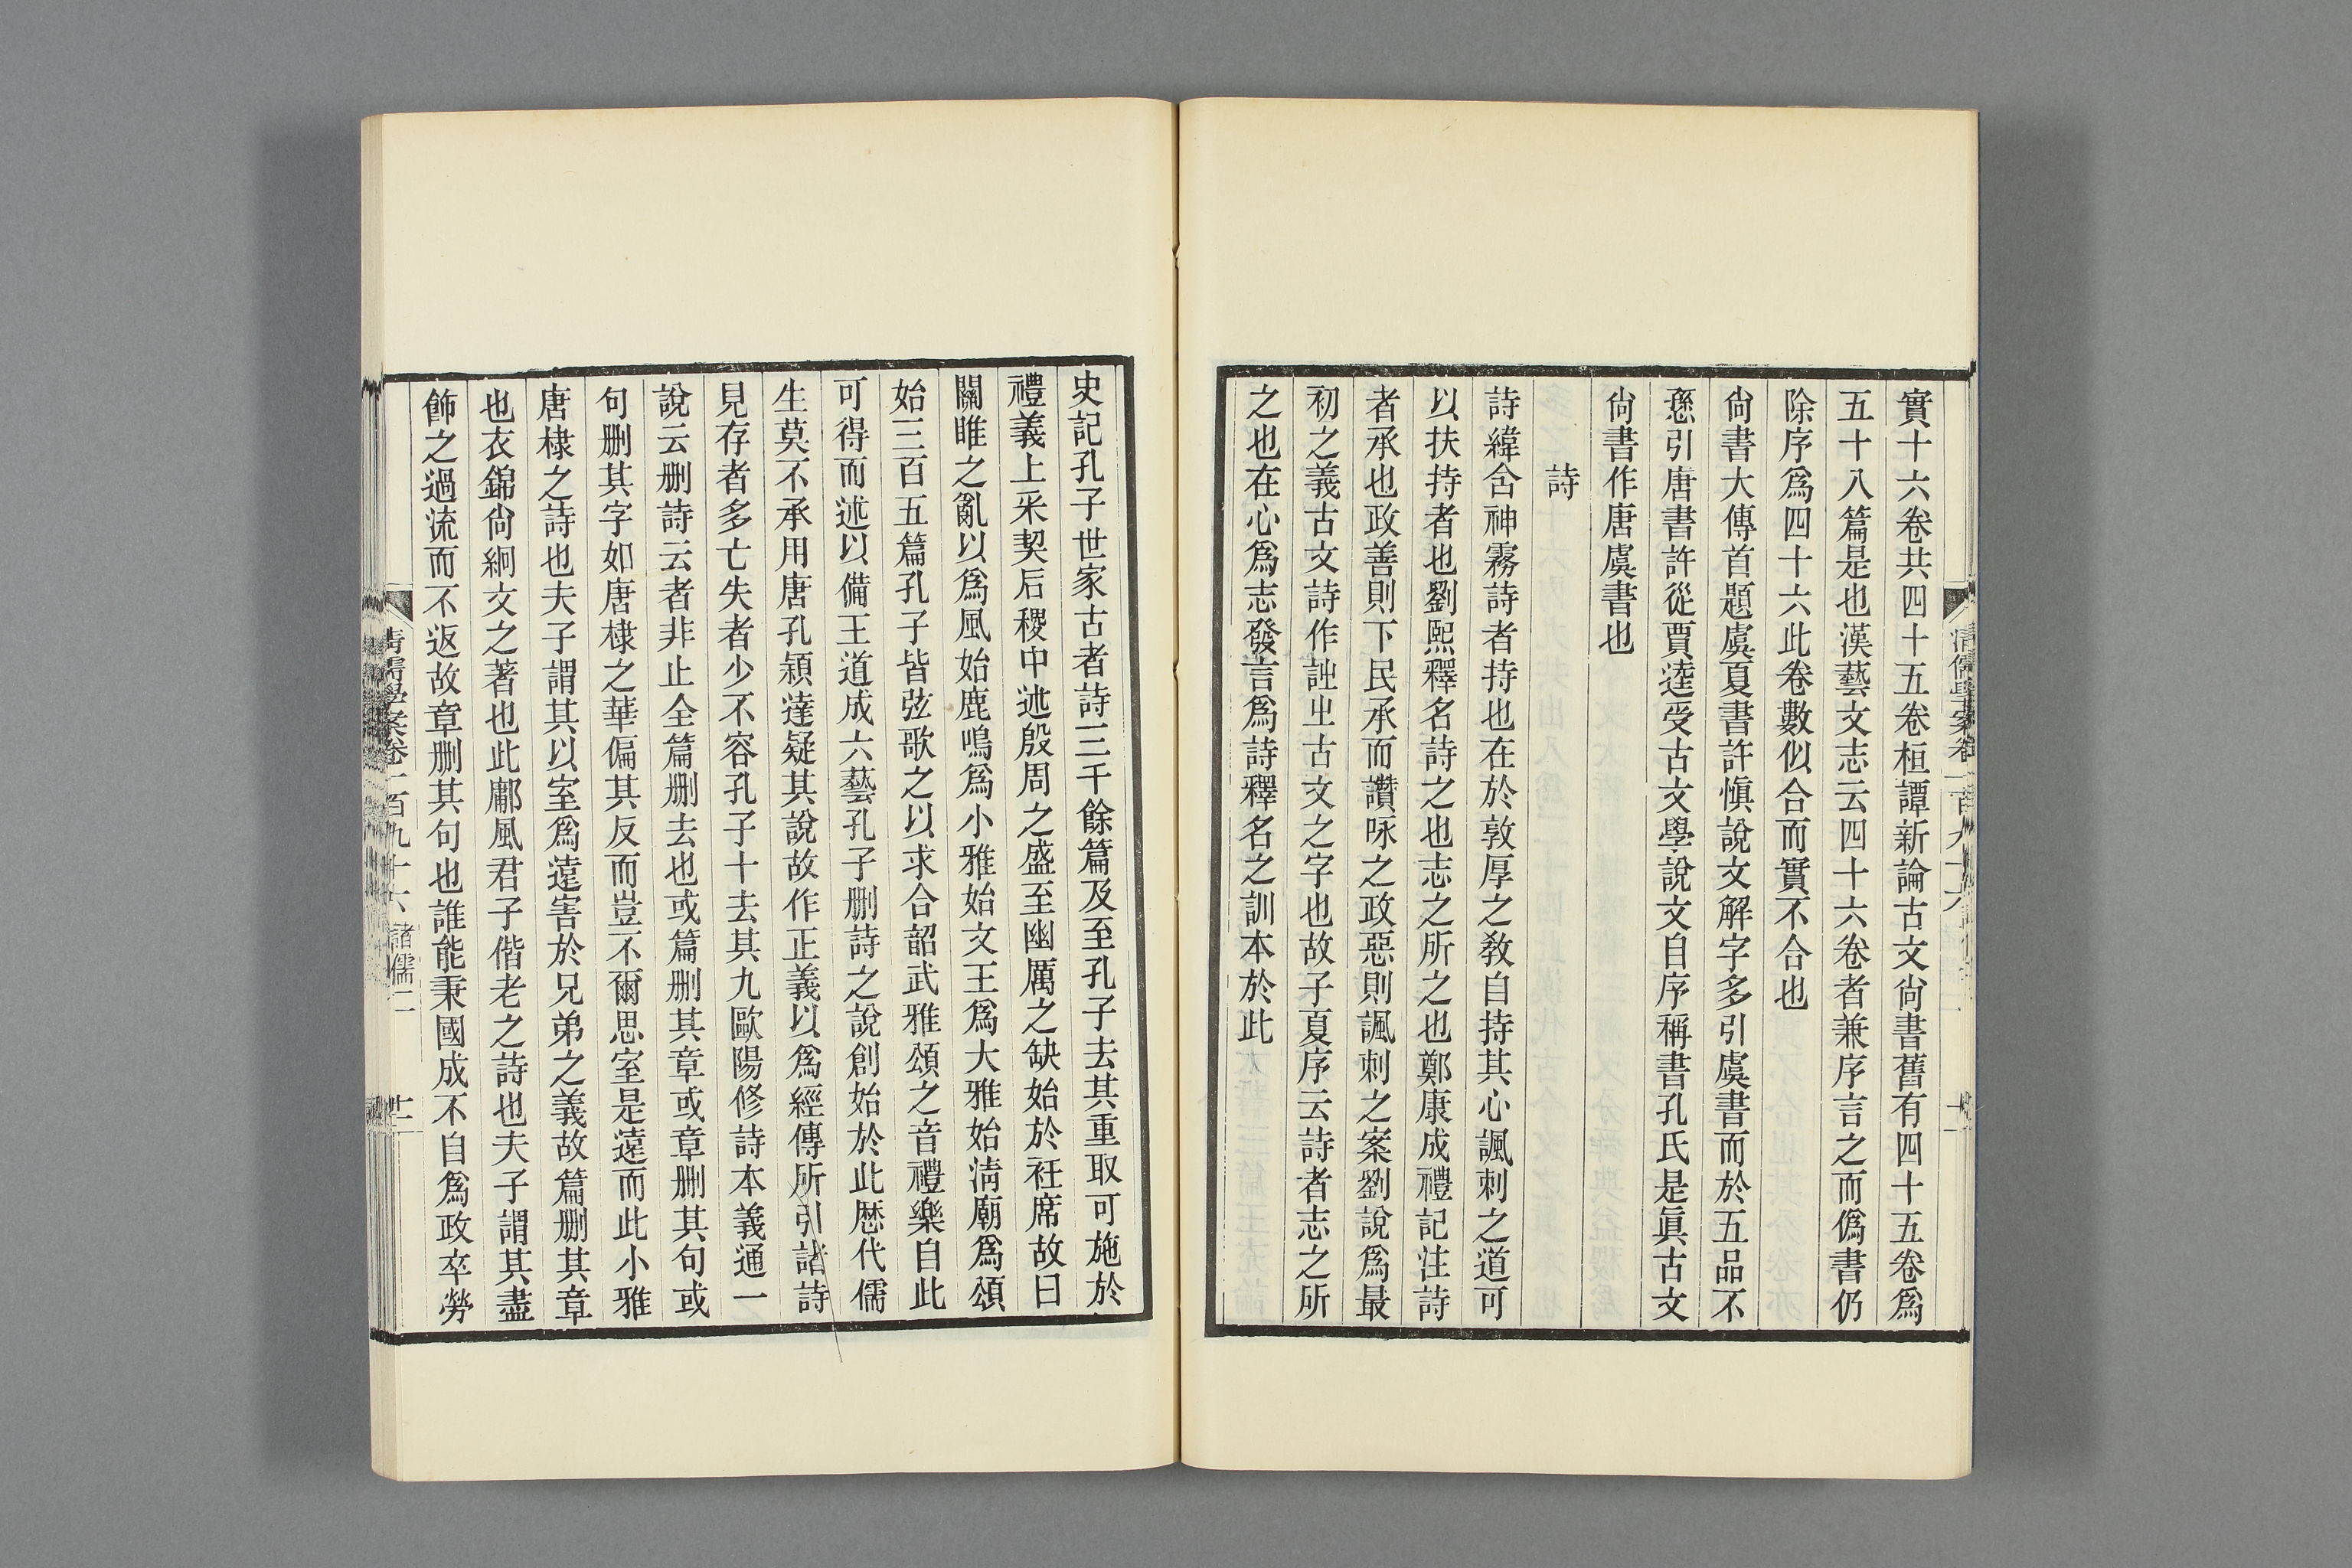 實十六卷共四十五卷桓譚新論古文尙書舊有四十五卷爲
五十八篇是也漢藝文志云四十六卷者兼序言之而僞書仍
除序爲四十六此卷數似合而實不合也
尙書大傳首題虞夏書許愼說文解字多引虞書而於五品不
愻引唐書許從賈逵受古文學說文自序稱書孔氏是眞古文
尙書作唐虞書也
詩
詩緯含神霧詩者持也在於敦厚之敎自持其心諷刺之道可
以扶持者也劉熙釋名詩之也志之所之也鄭康成禮記注詩
者承也政善則下民承而讚咏之政惡則諷刺之案劉說爲最
初之義古文詩作訨㞢古文之字也故子夏序云詩者志之所
之也在心爲志發言爲詩釋名之訓本於此
史記孔子世家古者詩三千餘篇及至孔子去其重取可施於
禮義上釆契后稷中述殷周之盛至幽厲之缺始於衽席故曰
關睢之亂以爲風始鹿鳴爲小雅始文王爲大雅始淸廟爲頌
始三百五篇孔子皆弦歌之以求合韶武雅頌之音禮樂自此
可得而述以備王道成六藝孔子删詩之說創始於此歷代儒
生莫不承用唐孔穎達疑其說故作正義以爲經傳所引諸詩
見存者多亡失者少不容孔子十去其九歐陽修詩本義通一
說云删詩云者非止全篇删去也或篇删其章或章删其句或
句删其字如唐棣之華偏其反而豈不爾思室是遠而此小雅
唐棣之詩也夫子謂其以室爲遠害於兄弟之義故篇删其章
也衣錦尙絅文之著也此鄘風君子偕老之詩也夫子謂其盡
飾之過流而不返故章删其句也誰能秉國成不自爲政卒勞
淸儒學案卷一百九十六 諸儒二